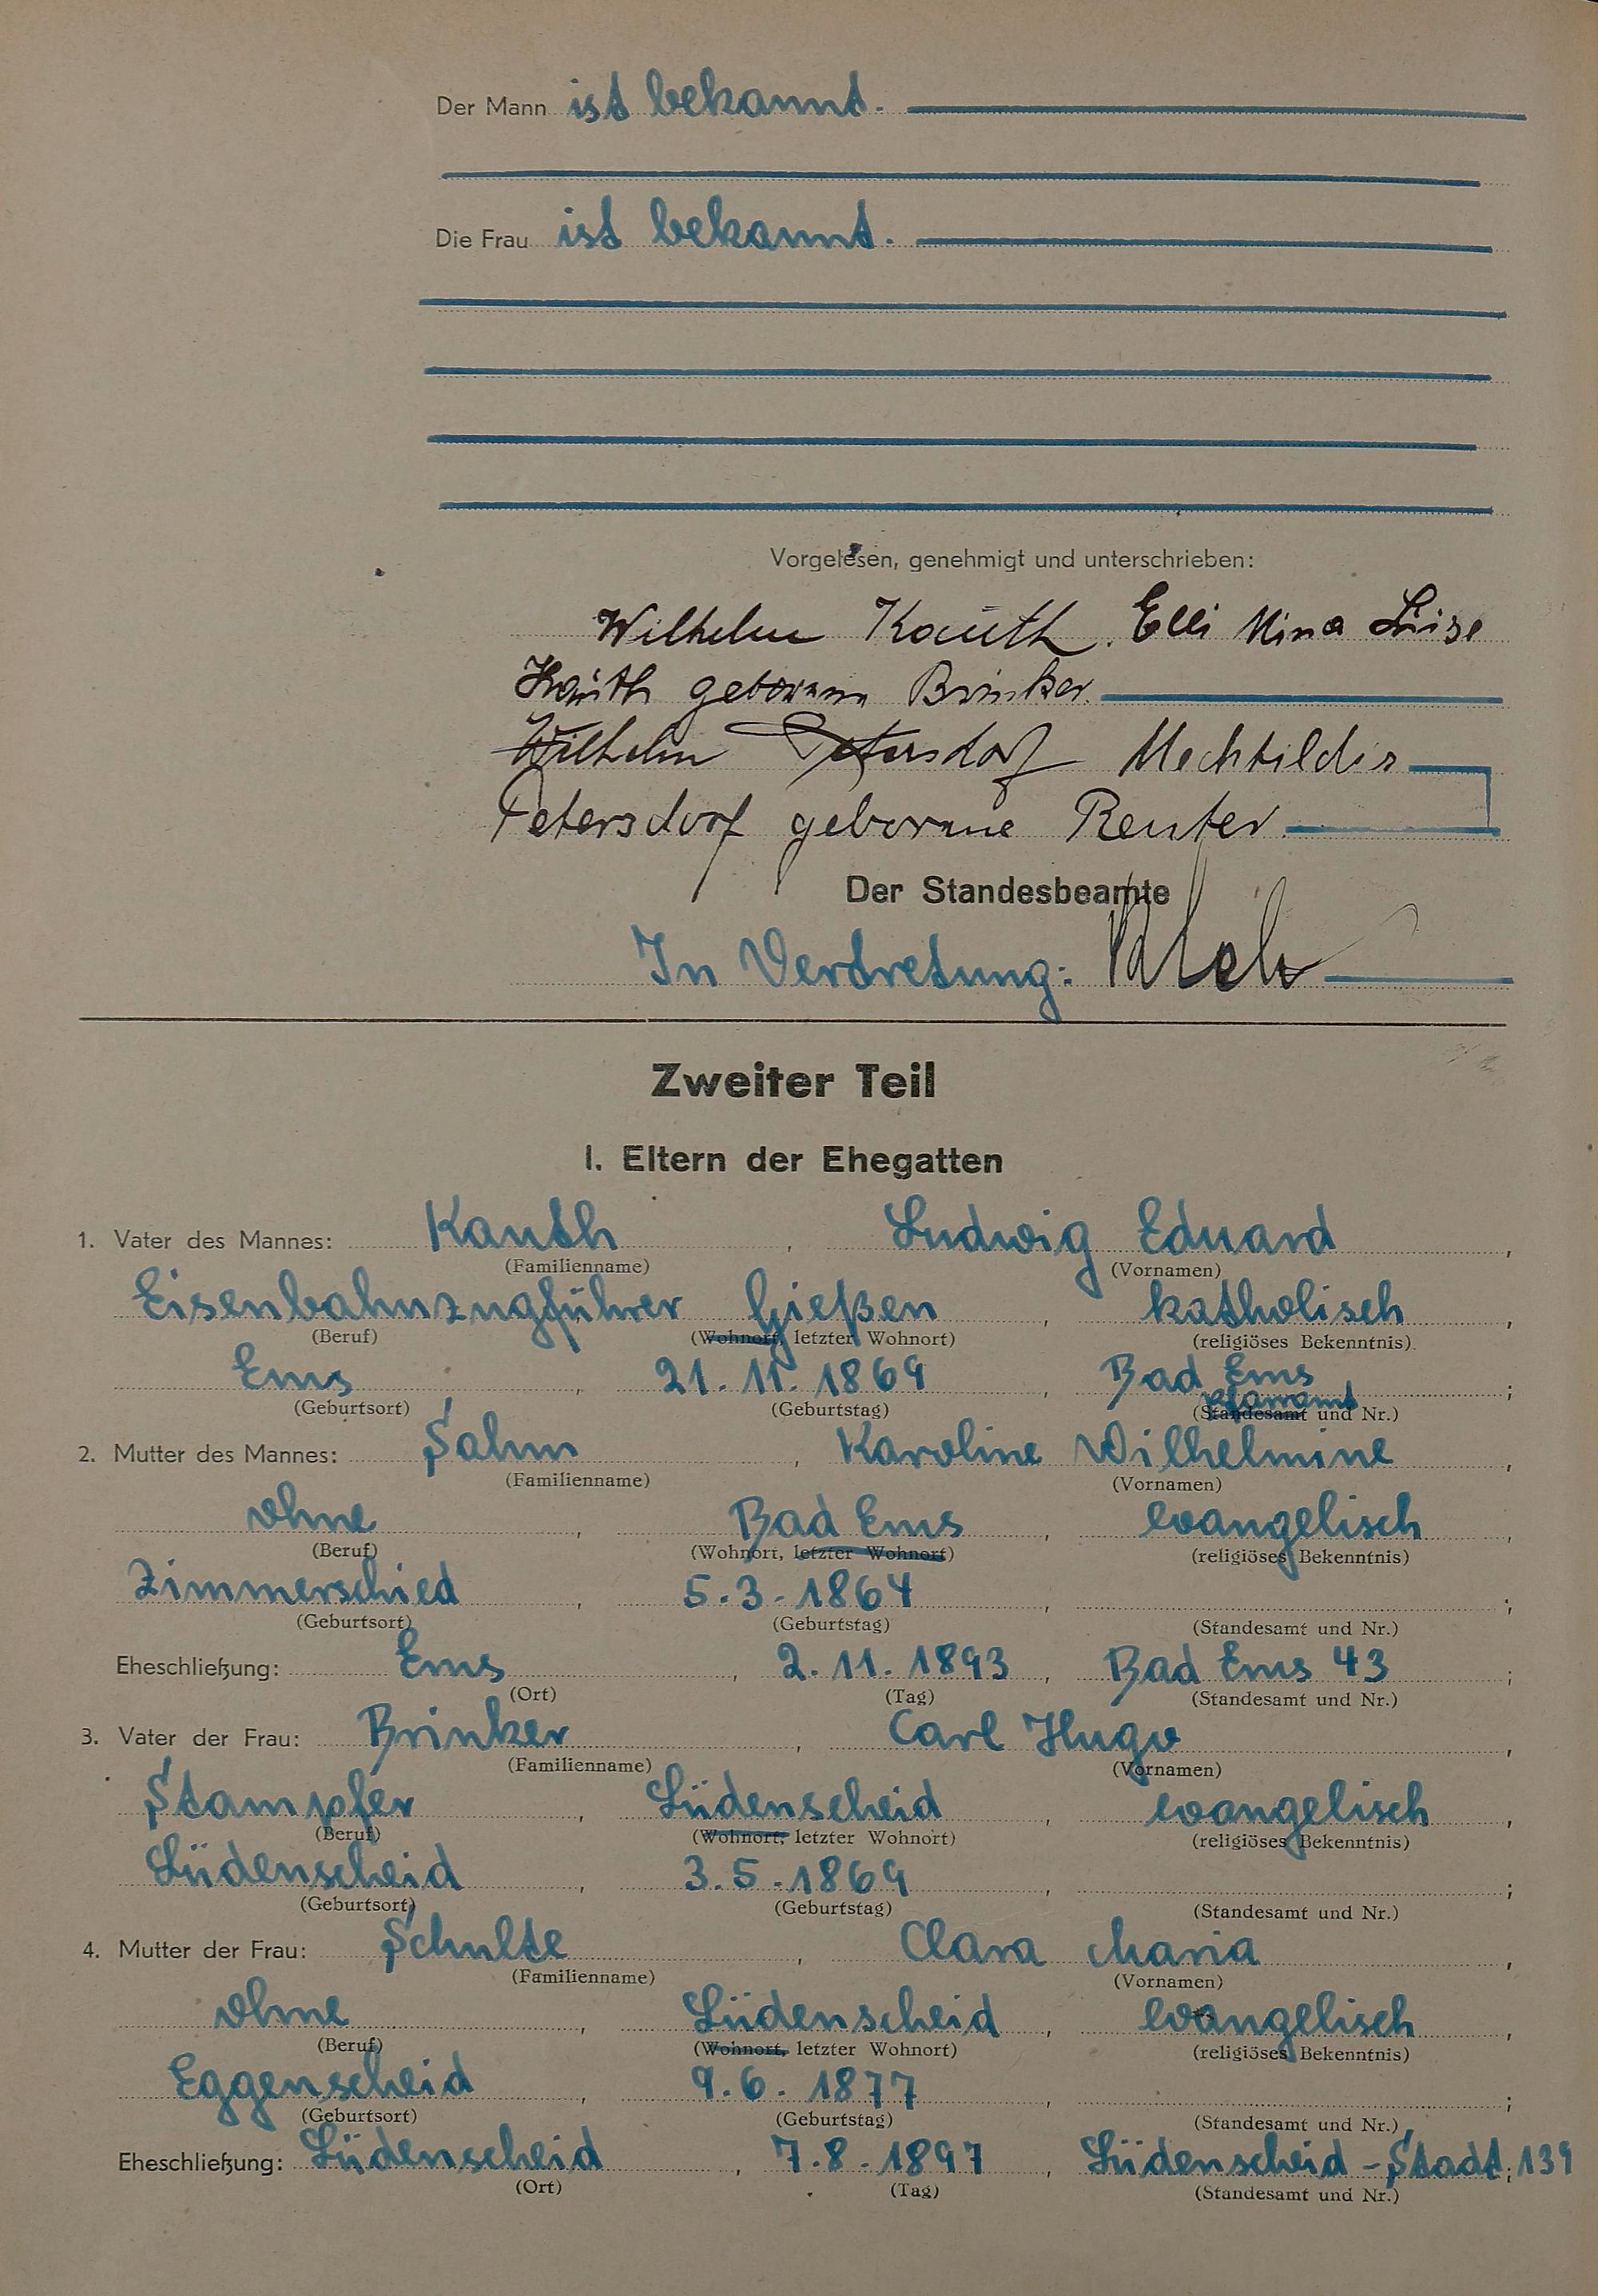 Der Mann ist bekannt.
Die Frau ist bekannt.
Vorgelesen, genehmigt und unterschrieben:
Wilhelm Kauth. Elli Mina Luise
Kauth geborene Brinker.
Wilhelm Petersdorf Mechtildis
Petersdorf geborene Reuter
Der Standesbeamte
In Vertretung:
Zweiter Teil
I. Eltern der Ehegatten
1. Vater des Mannes: Kauth, Ludwig Eduard,
(Familienname) (Vornamen)
Eisenbahnzugführer Gießen, katholisch,
(Beruf) (Wohnort, letzter Wohnort) (religiöses Bekenntnis)
Ems, 21.11.1869, Bad Ems;
Pfarramt
(Geburtsort) (Geburtstag) (Standesamt und Nr.)
2. Mutter des Mannes: Sahm, Karoline Wilhelmine,
(Familienname) (Vornamen)
ohne, Bad Ems, evangelisch,
(Beruf) (Wohnort, letzter Wohnort) (religiöses Bekenntnis)
Zimmerschied, 5.3.1864,;
(Geburtsort) (Geburtstag) (Standesamt und Nr.)
Eheschließung: Ems, 2.11.1893, Bad Ems 43;
(Ort) (Tag) (Standesamt und Nr.)
3. Vater der Frau: Brinker, Carl Hugo,
(Familienname) (Vornamen)
Stampfer, Lüdenscheid, evangelisch,
(Beruf) (Wohnort, letzter Wohnort) (religiöses Bekenntnis)
Lüdenscheid, 3.5.1869,;
(Geburtsort) (Geburtstag) (Standesamt und Nr.)
4. Mutter der Frau: Schulte, Clara Maria,
(Familienname) (Vornamen)
ohne, Lüdenscheid, evangelisch,
(Beruf) (Wohnort, letzter Wohnort) (religiöses Bekenntnis)
Eggenscheid, 9.6.1877,;
(Geburtsort) (Geburtstag) (Standesamt und Nr.)
Eheschließung: Lüdenscheid, 7.8.1897, Lüdenscheid-Stadt; 139
(Ort) (Tag) (Standesamt und Nr.)